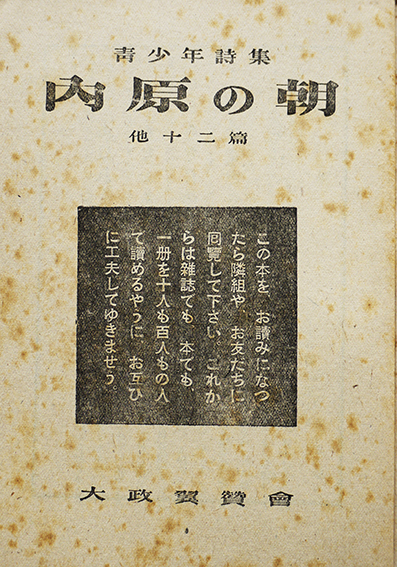 青少年詩集
內原の朝
他十二篇
この本を、お讀みになつ
たら隣組や、お友だちに
囘覽して下さい、これか
らは雜誌でも、本でも、
一册を十人も百人もの人
て讀めるやうに、お互ひ
に工夫してゆきませう
大政翼贊會